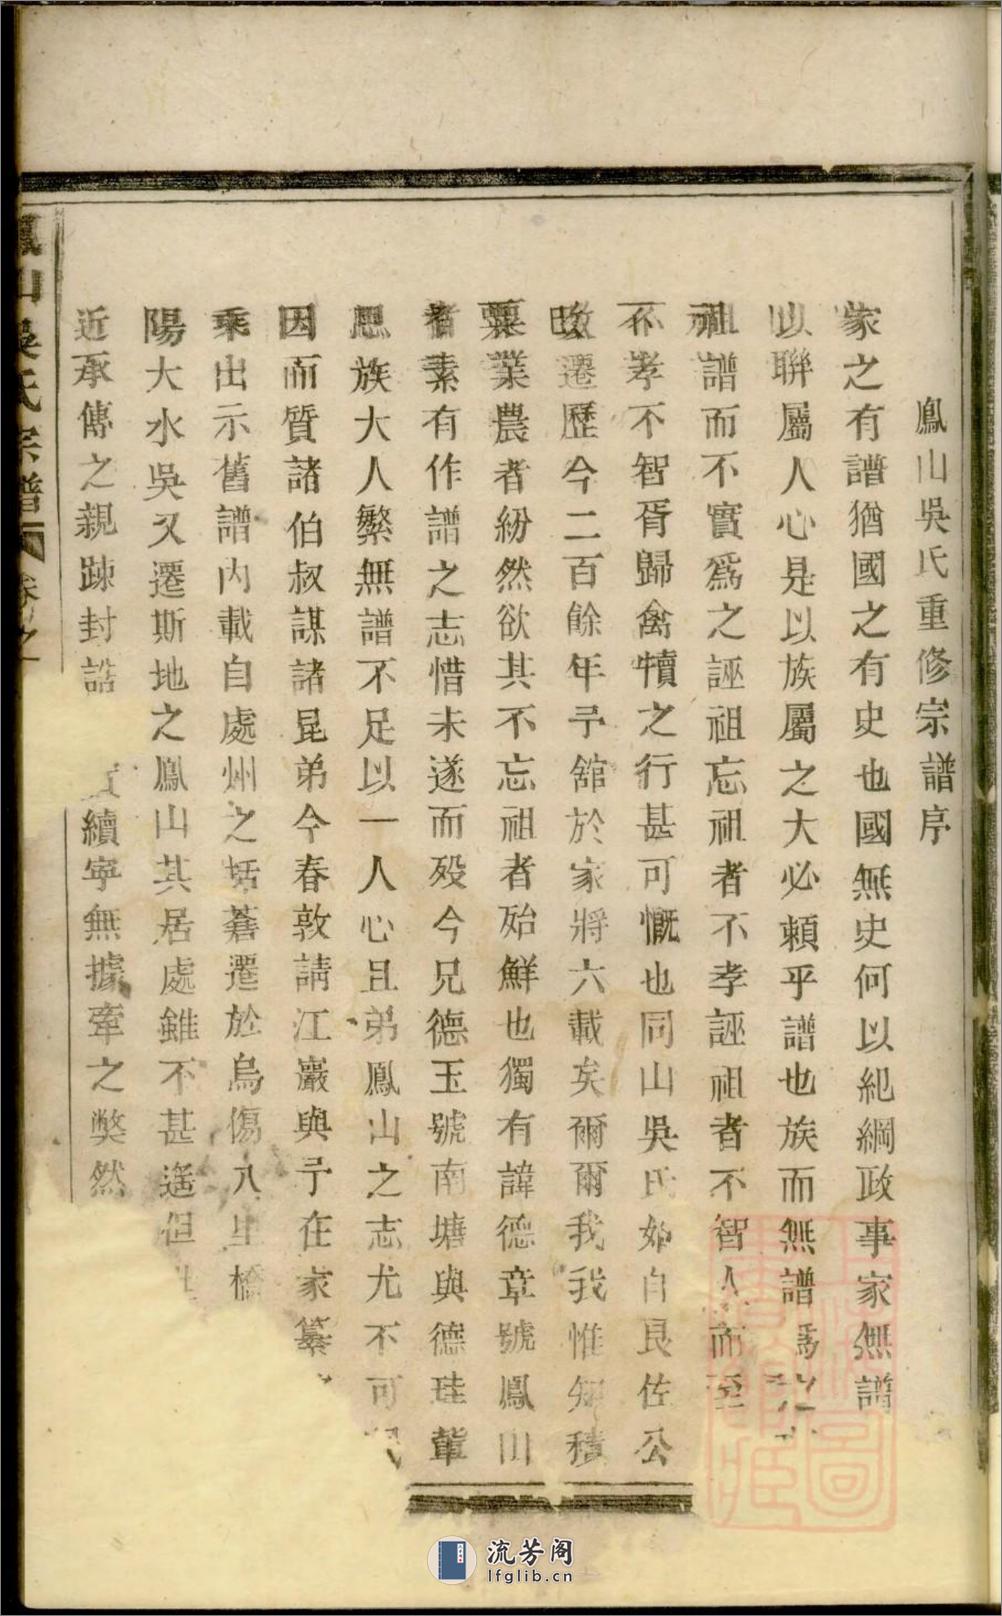 鳳山吳氏重修宗譜序
家之有譜猶國之有史也國無史何以紀綱政事家無譜
以聯屬人心是以族屬之大必頼乎譜也族而無譜爲
祖譜而不實爲之誣祖忘祖者不孝誣祖者不智人而至
不孝不智胥歸禽犢之行甚可慨也同山吳氏始自良佐公
遷歷今二百餘年予舘於家將六載矣爾爾我我惟知積
粟業農者紛然欲其不忘祖者殆鮮也獨有諱德章號鳳山
者素有作譜之志惜未遂而殁今兄德玉號南塘與德珪輩
思族大人繁無譜不足以一人心且弟鳳山之志尤不可
因而質諸伯叔謀諸昆弟今春敦請江巖與予在家纂
乘出示舊譜内載自處州之括蒼遷於烏傷八里橋
陽大水吳又遷斯地之鳳山其居處雖不甚遙但
近承傳之親踈封誥
續寕無據牽之獘然
鳳山吳氏宗譜 卷之一
流芳阁
lfglib.cn